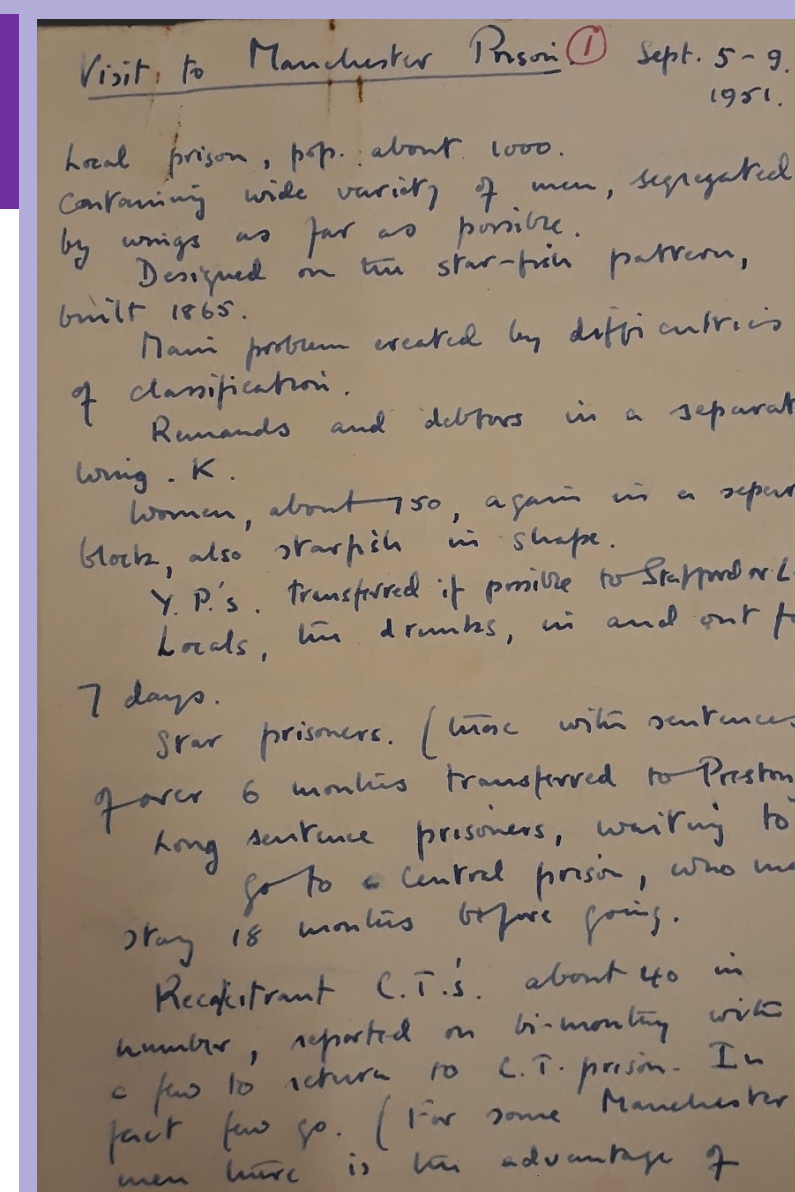 Visit to Manchester Prison. 1 Sept. 5-9.
1951.
Local prison, pop. about 1000.
Containing wide variety of men, segregated
by wings as far as possible.
Designed on the star-fish pattern,
built 1865.
Main problem created by difficulties
of classification.
Remands and debtors in a separat
wing. K.
Women, about 150, again in a separ
block, also starfish in shape.
Y.P.'s. transferred if possible to Stafford or L
Locals, the drunks, in and out f
7 days.
Star prisoners. (those with sentences
of over 6 months transferred to Preston
Long sentence prisoners, waiting to
go to a central prison, who ma
stay 18 months before going.
Recalcitrant C.T.'s. about 40 in
number, reported on bi-monthly with
a few to return to C.T. prison. In
fact few go. (For some Manchester
men there is the advantage of